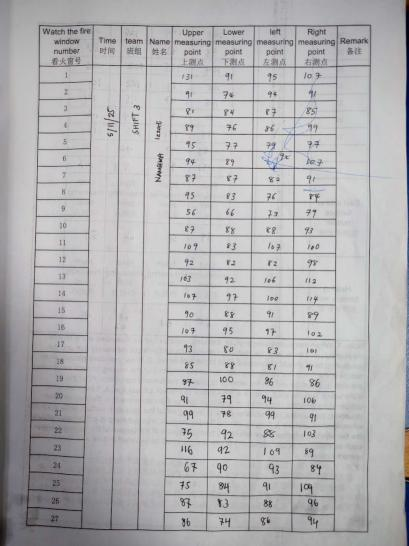 Watch the fire window number 看火窗号 | Time 时间 | team 班组 | Name 姓名 | Upper measuring point 上测点 | Lower measuring point 下测点 | left measuring point 左测点 | Right measuring point 右测点 | Remark 备注
5/11/25
SHIFT 3
1 131 91 95 107
2 91 74 94 91
3 81 84 87 85
4 89 76 86 99
5 95 77 79 77
6 94 89 92 107
7 87 87 82 91
8 95 83 76 84
9 56 66 79
10 87 88 88 93
11 109 83 107 100
12 92 82 82 98
13 103 92 106 112
14 107 97 100 114
15 90 88 91 89
16 107 95 97 102
17 93 80 83 101
18 85 88 81 91
19 87 100 86 86
20 91 79 94 106
21 99 78 99 91
22 75 92 88 103
23 116 92 109 89
24 67 90 93 84
25 75 84 91 109
26 87 83 88 96
27 86 74 86 94